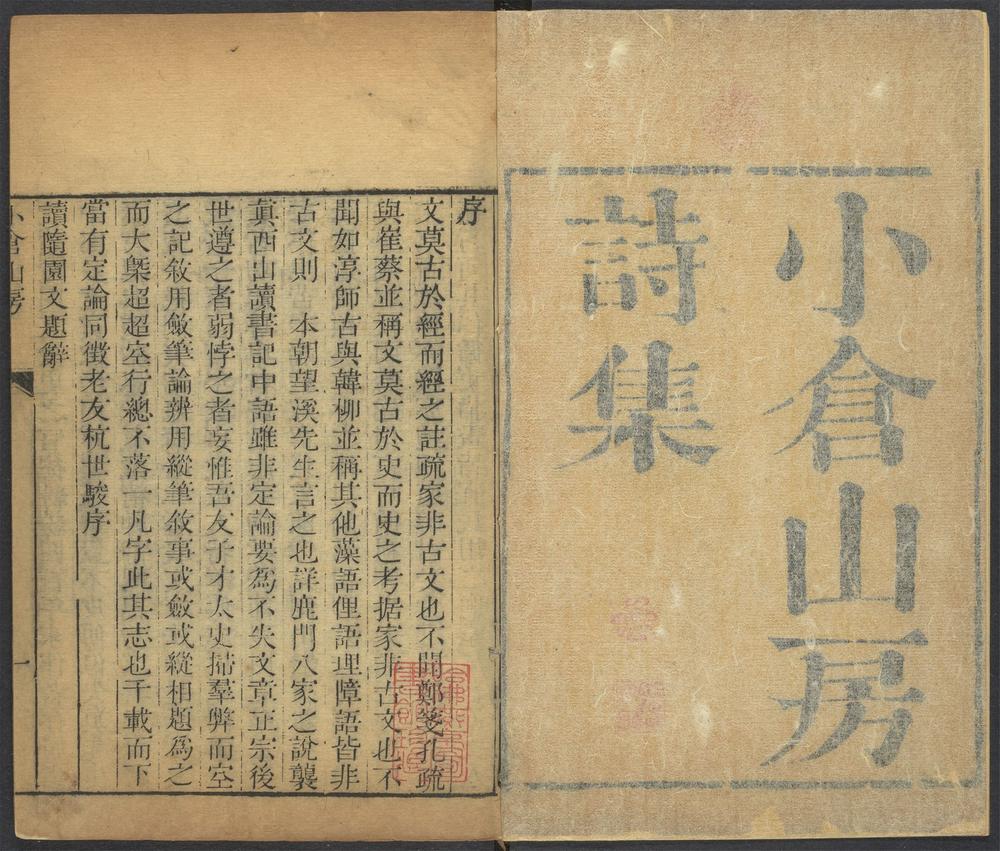 小倉山房
詩集
序
文莫古於經而經之註疏家非古文也不聞鄭箋孔疏
與崔蔡並稱文莫古於史而史之考据家非古文也不
聞如淳師古與韓柳並稱其他藻語俚語理障語皆非
古文則　本朝望溪先生言之也詳鹿門八家之說襲
眞西山讀書記中語雖非定論要爲不失文章正宗後
世遵之者弱悖之者妄惟吾友子才太史掃羣弊而空
之記敘用斂筆論辨用縱筆敘事或斂或縱相題爲之
而大槩超超空行總不落一凡字此其志也千載而下
當有定論同徵老友杭世駿序
讀隨園文題辭
小倉山房
一